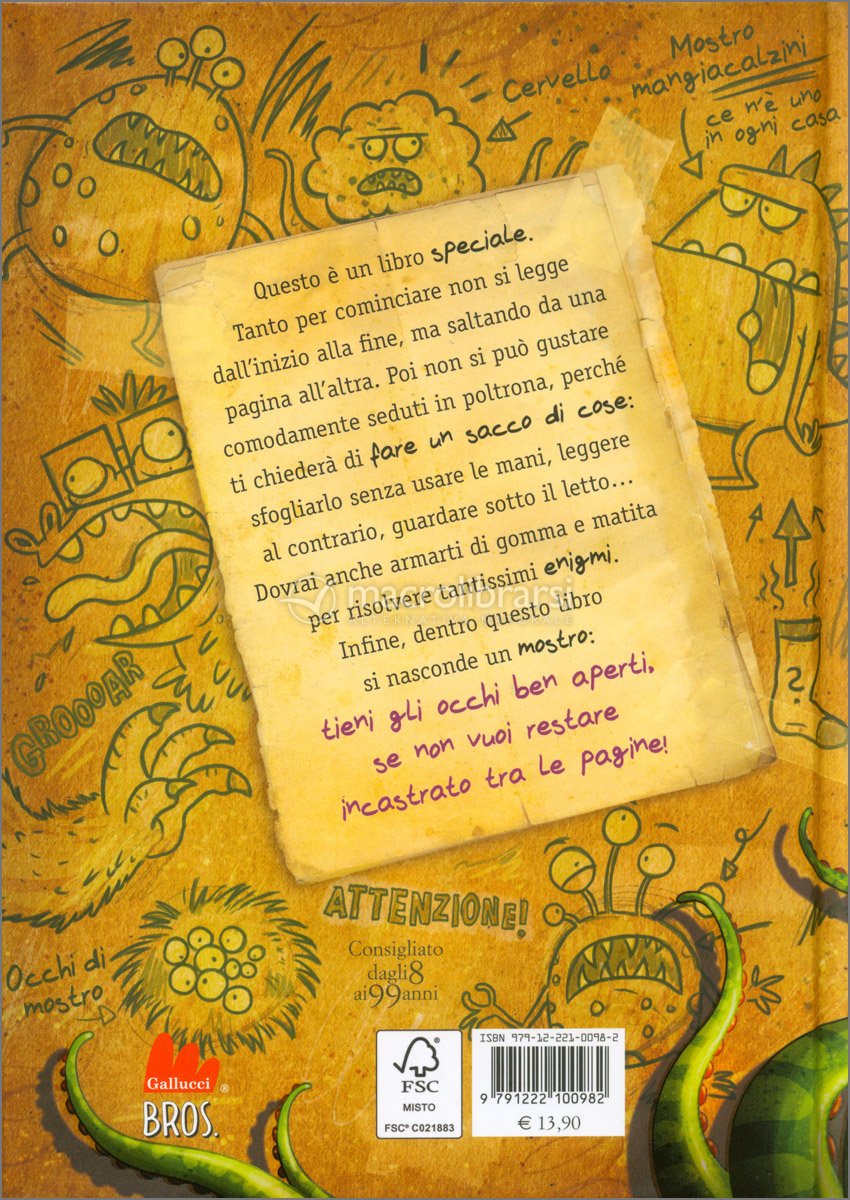 Cervello
Mostro
mangiacalzini
ce n'è uno
in ogni casa
Questo è un libro speciale.
Tanto per cominciare non si legge
dall'inizio alla fine, ma saltando da una
pagina all'altra. Poi non si può gustare
comodamente seduti in poltrona, perché
ti chiederà di fare un sacco di cose:
sfogliarlo senza usare le mani, leggere
al contrario, guardare sotto il letto...
Dovrai anche armarti di gomma e matita
per risolvere tantissimi enigmi.
Infine, dentro questo libro
si nasconde un mostro:
tieni gli occhi ben aperti,
se non vuoi restare
incastrato tra le pagine!
macrolibrarsi
GROOOAR
?
ATTENZIONE!
Consigliato
dagli 8
ai 99 anni
Occhi di
mostro
Gallucci ®
BROS.
FSC
MISTO
FSC® C021883
ISBN 979-12-221-0098-2
9 791222 100982
€ 13,90